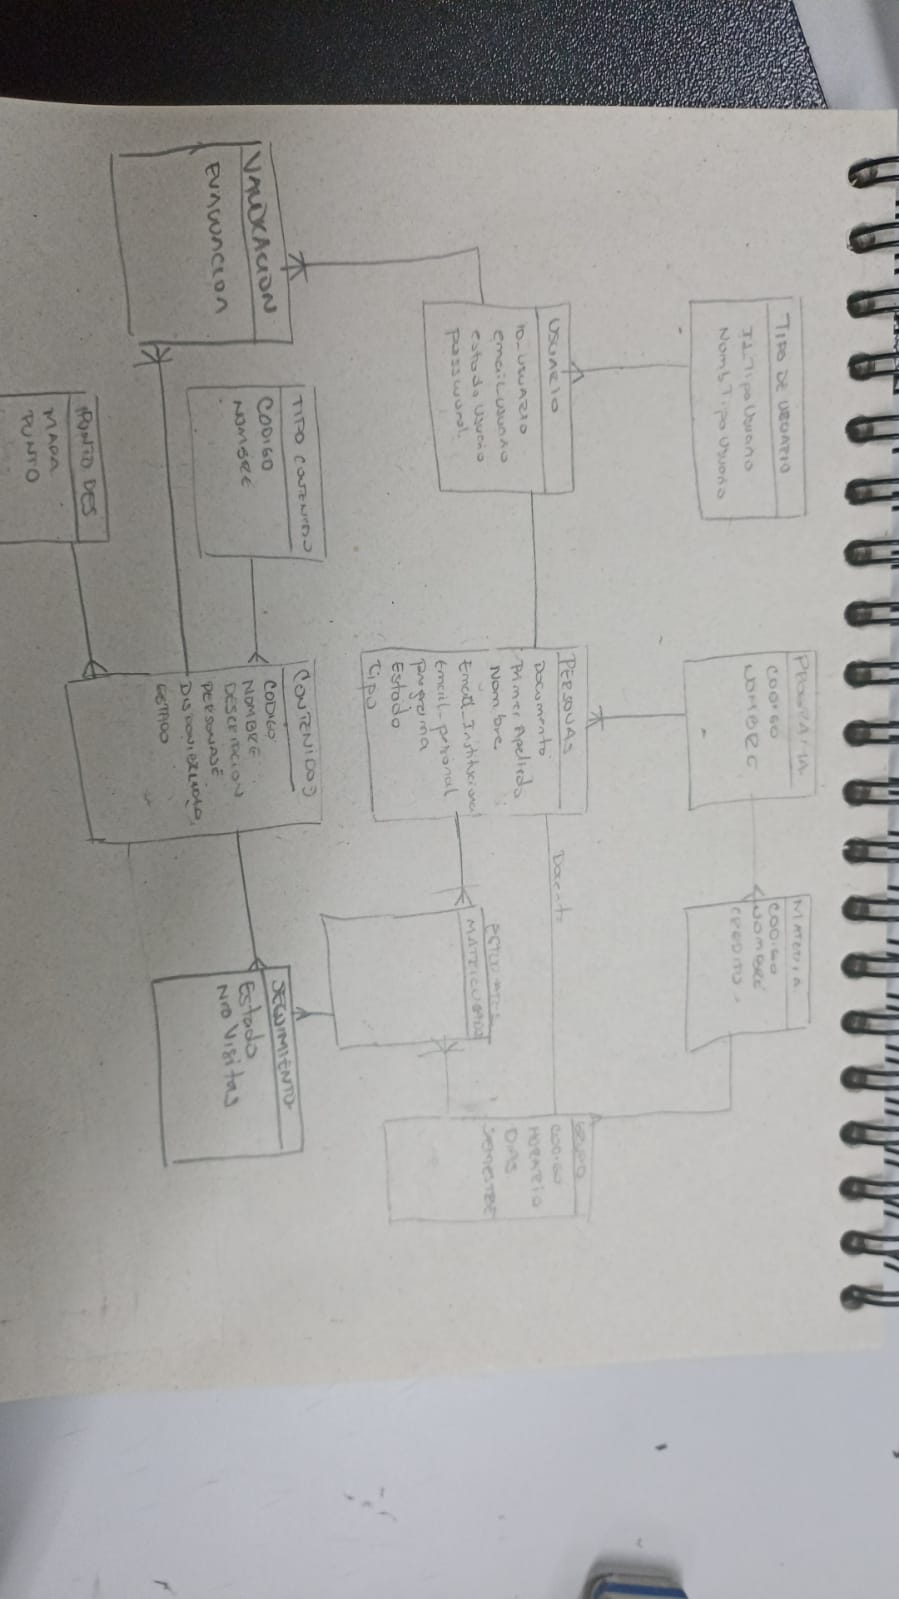 TIPO DE USUARIO
Id_TipoUsuario
NombTipoUsuario
PROGRAMA
CODIGO
NOMBRE
MATERIA
CODIGO
NOMBRE
CREDITO
USUARIO
ID_USUARIO
email usuario
estado Usuario
password
PERSONAS
Documento
Primer Apellido
Nombre
Email_Institucional
Email_personal
programa
Estado
Tipo
Docente
GRUPO
CODIGO
HORARIO
DIAS
SEMESTRE
ESTUDIANTE
MATRICULADO
VALORACION
EVALUACION
TIPO CONTENIDO
CODIGO
NOMBRE
CONTENIDOS
CODIGO
NOMBRE
DESCRIPCION
PERSONAJE
DISPONIBILIDAD
ESTADO
SEGUIMIENTO
Estado
Nro Visitas
DES
MAPA
PUNTO